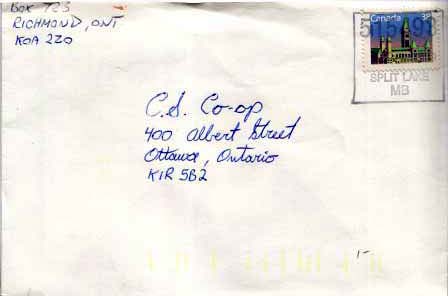 Box 723
RICHMOND, ONT
KOA 2ZO
Canada
SPLIT LAKE
MB
C.S. Co-op
400 Albert Street
Ottawa, Ontario
K1R 5B2